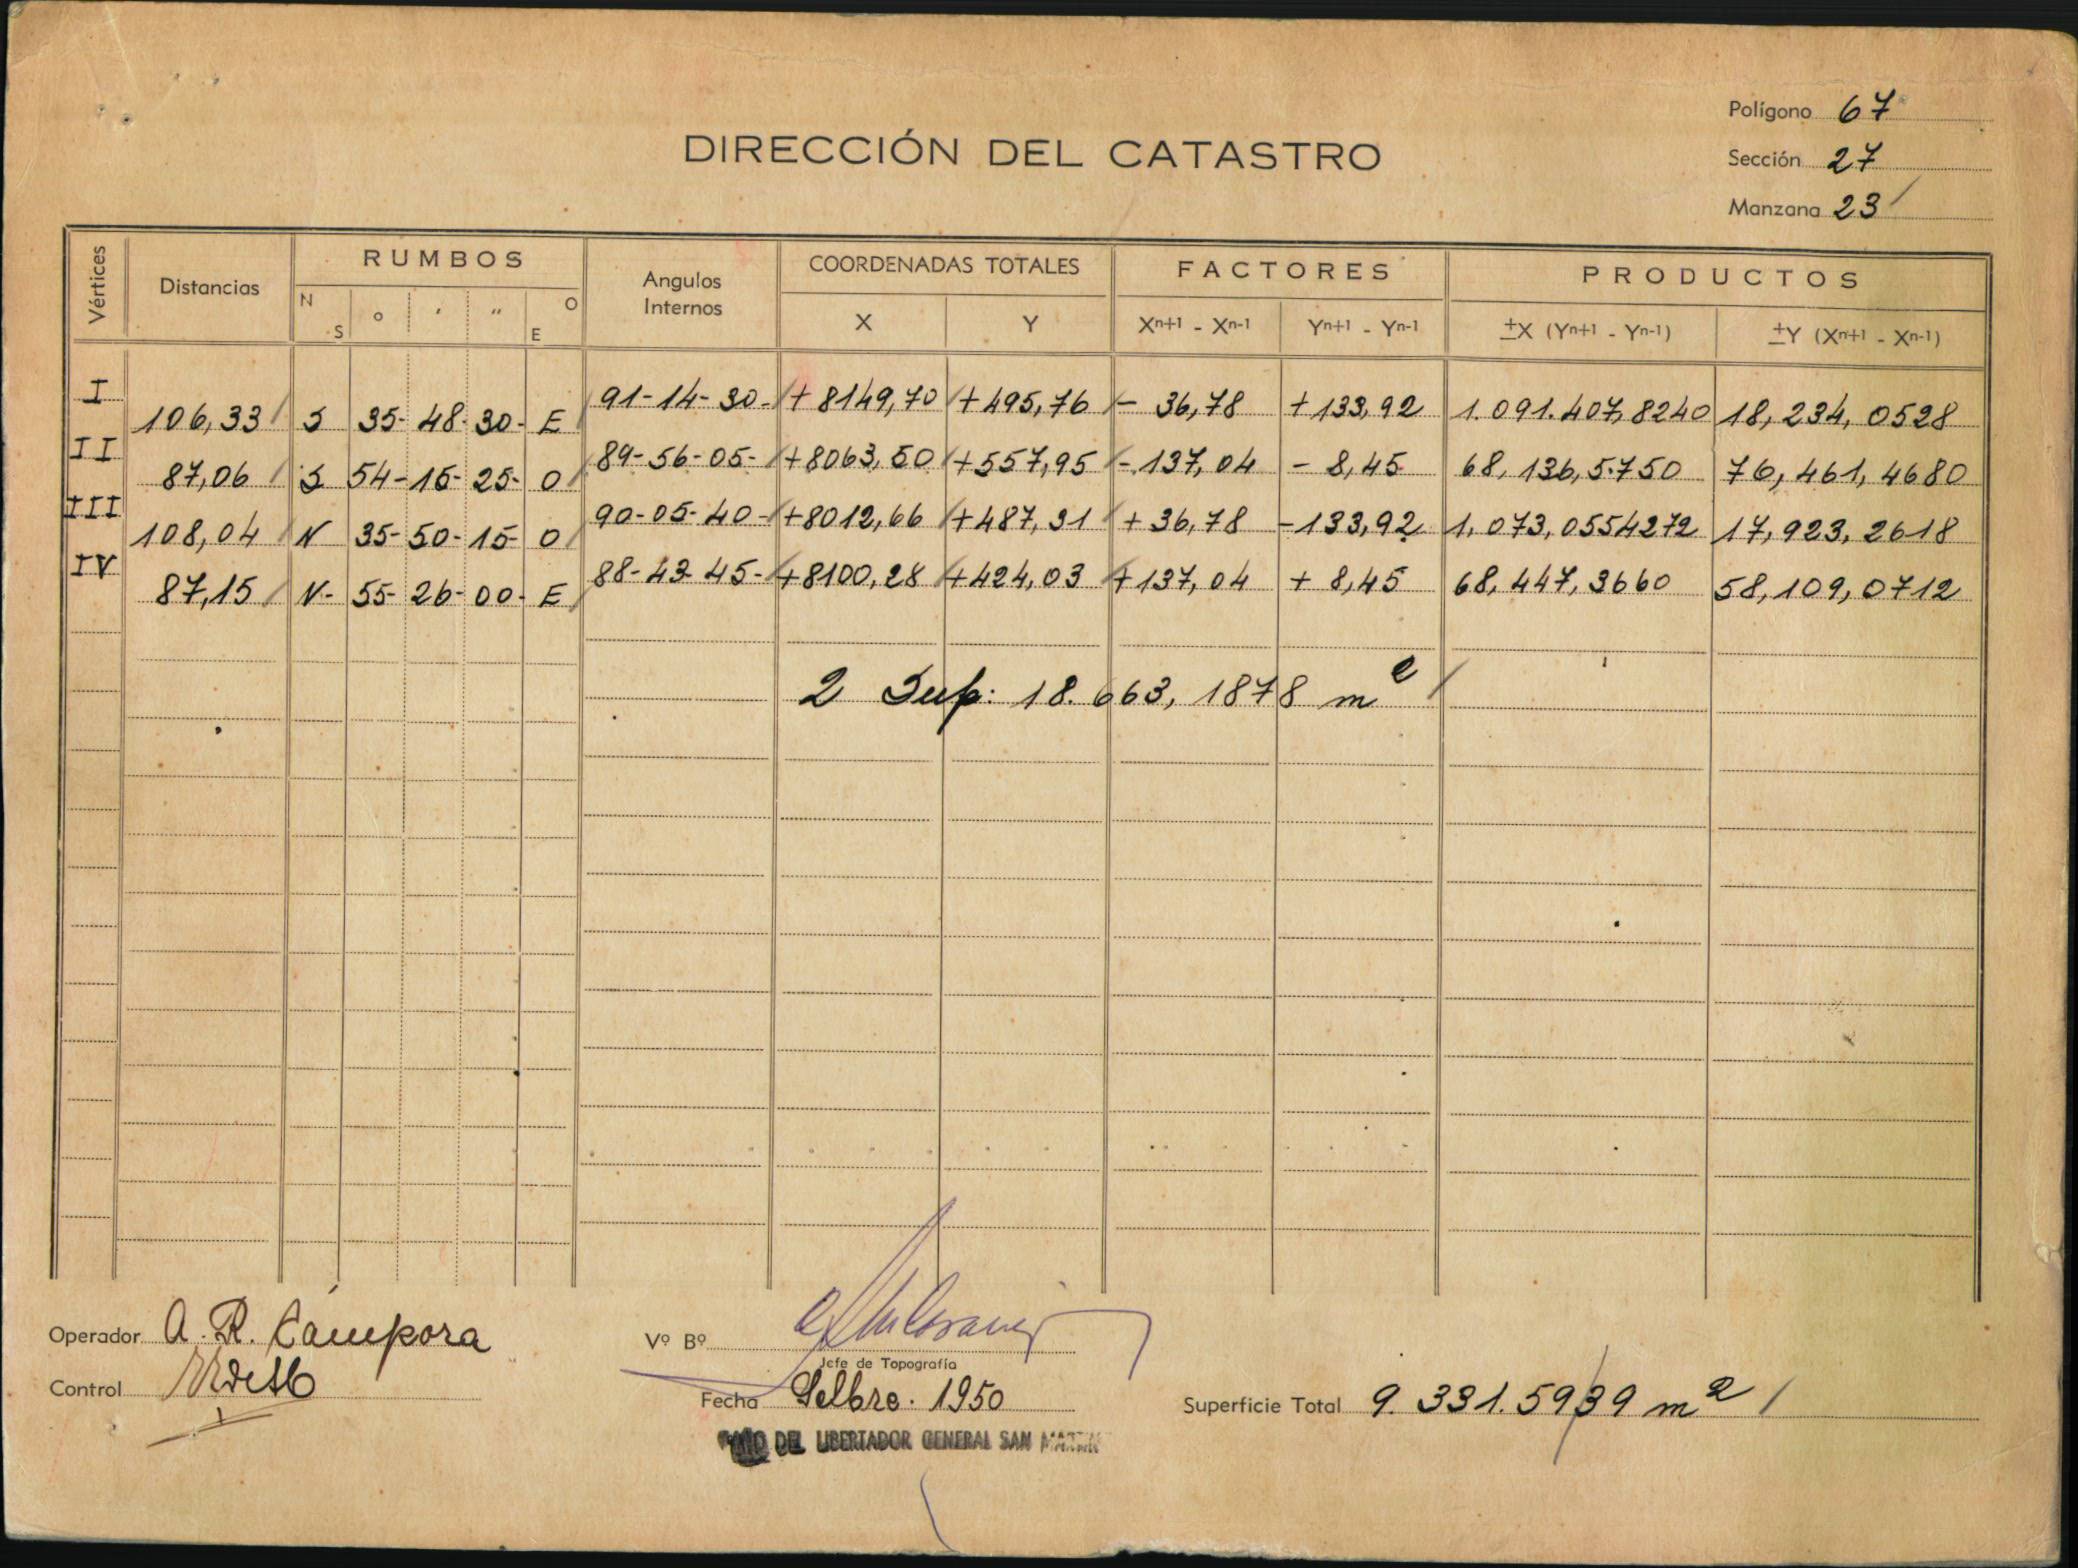 Polígono 67
DIRECCIÓN DEL CATASTRO
Sección 27
Manzana 23
Vértices Distancias RUMBOS Angulos Internos COORDENADAS TOTALES FACTORES PRODUCTOS
N S o ' " O E X Y Xn+1 - Xn-1 Yn+1 - Yn-1 ±X (Yn+1 - Yn-1) ±Y (Xn+1 - Xn-1)
I 106,33 S 35- 48- 30- E 91-14-30- +8149,70 +495,76 - 36,78 +133,92 1.091.407,8240 18,234,0528
II 87,06 S 54- 15- 25- O 89-56-05- +8063,50 +557,95 -137,04 - 8,45 68,136,5750 76,461,4680
III 108,04 N 35- 50- 15- O 90-05-40- +8012,66 +487,31 +36,78 -133,92 1,073,0554272 17,923,2618
IV 87,15 N- 55- 26- 00- E 88-43-45- +8100,28 +424,03 +137,04 + 8,45 68,447,3660 58,109,0712
2 Sup: 18.663,1878 m2
Operador A. R. Cámpora
Vº Bº
Jefe de Topografía
Control
Fecha Setbre. 1950
Superficie Total 9.331.5939 m2
AÑO DEL LIBERTADOR GENERAL SAN MARTIN